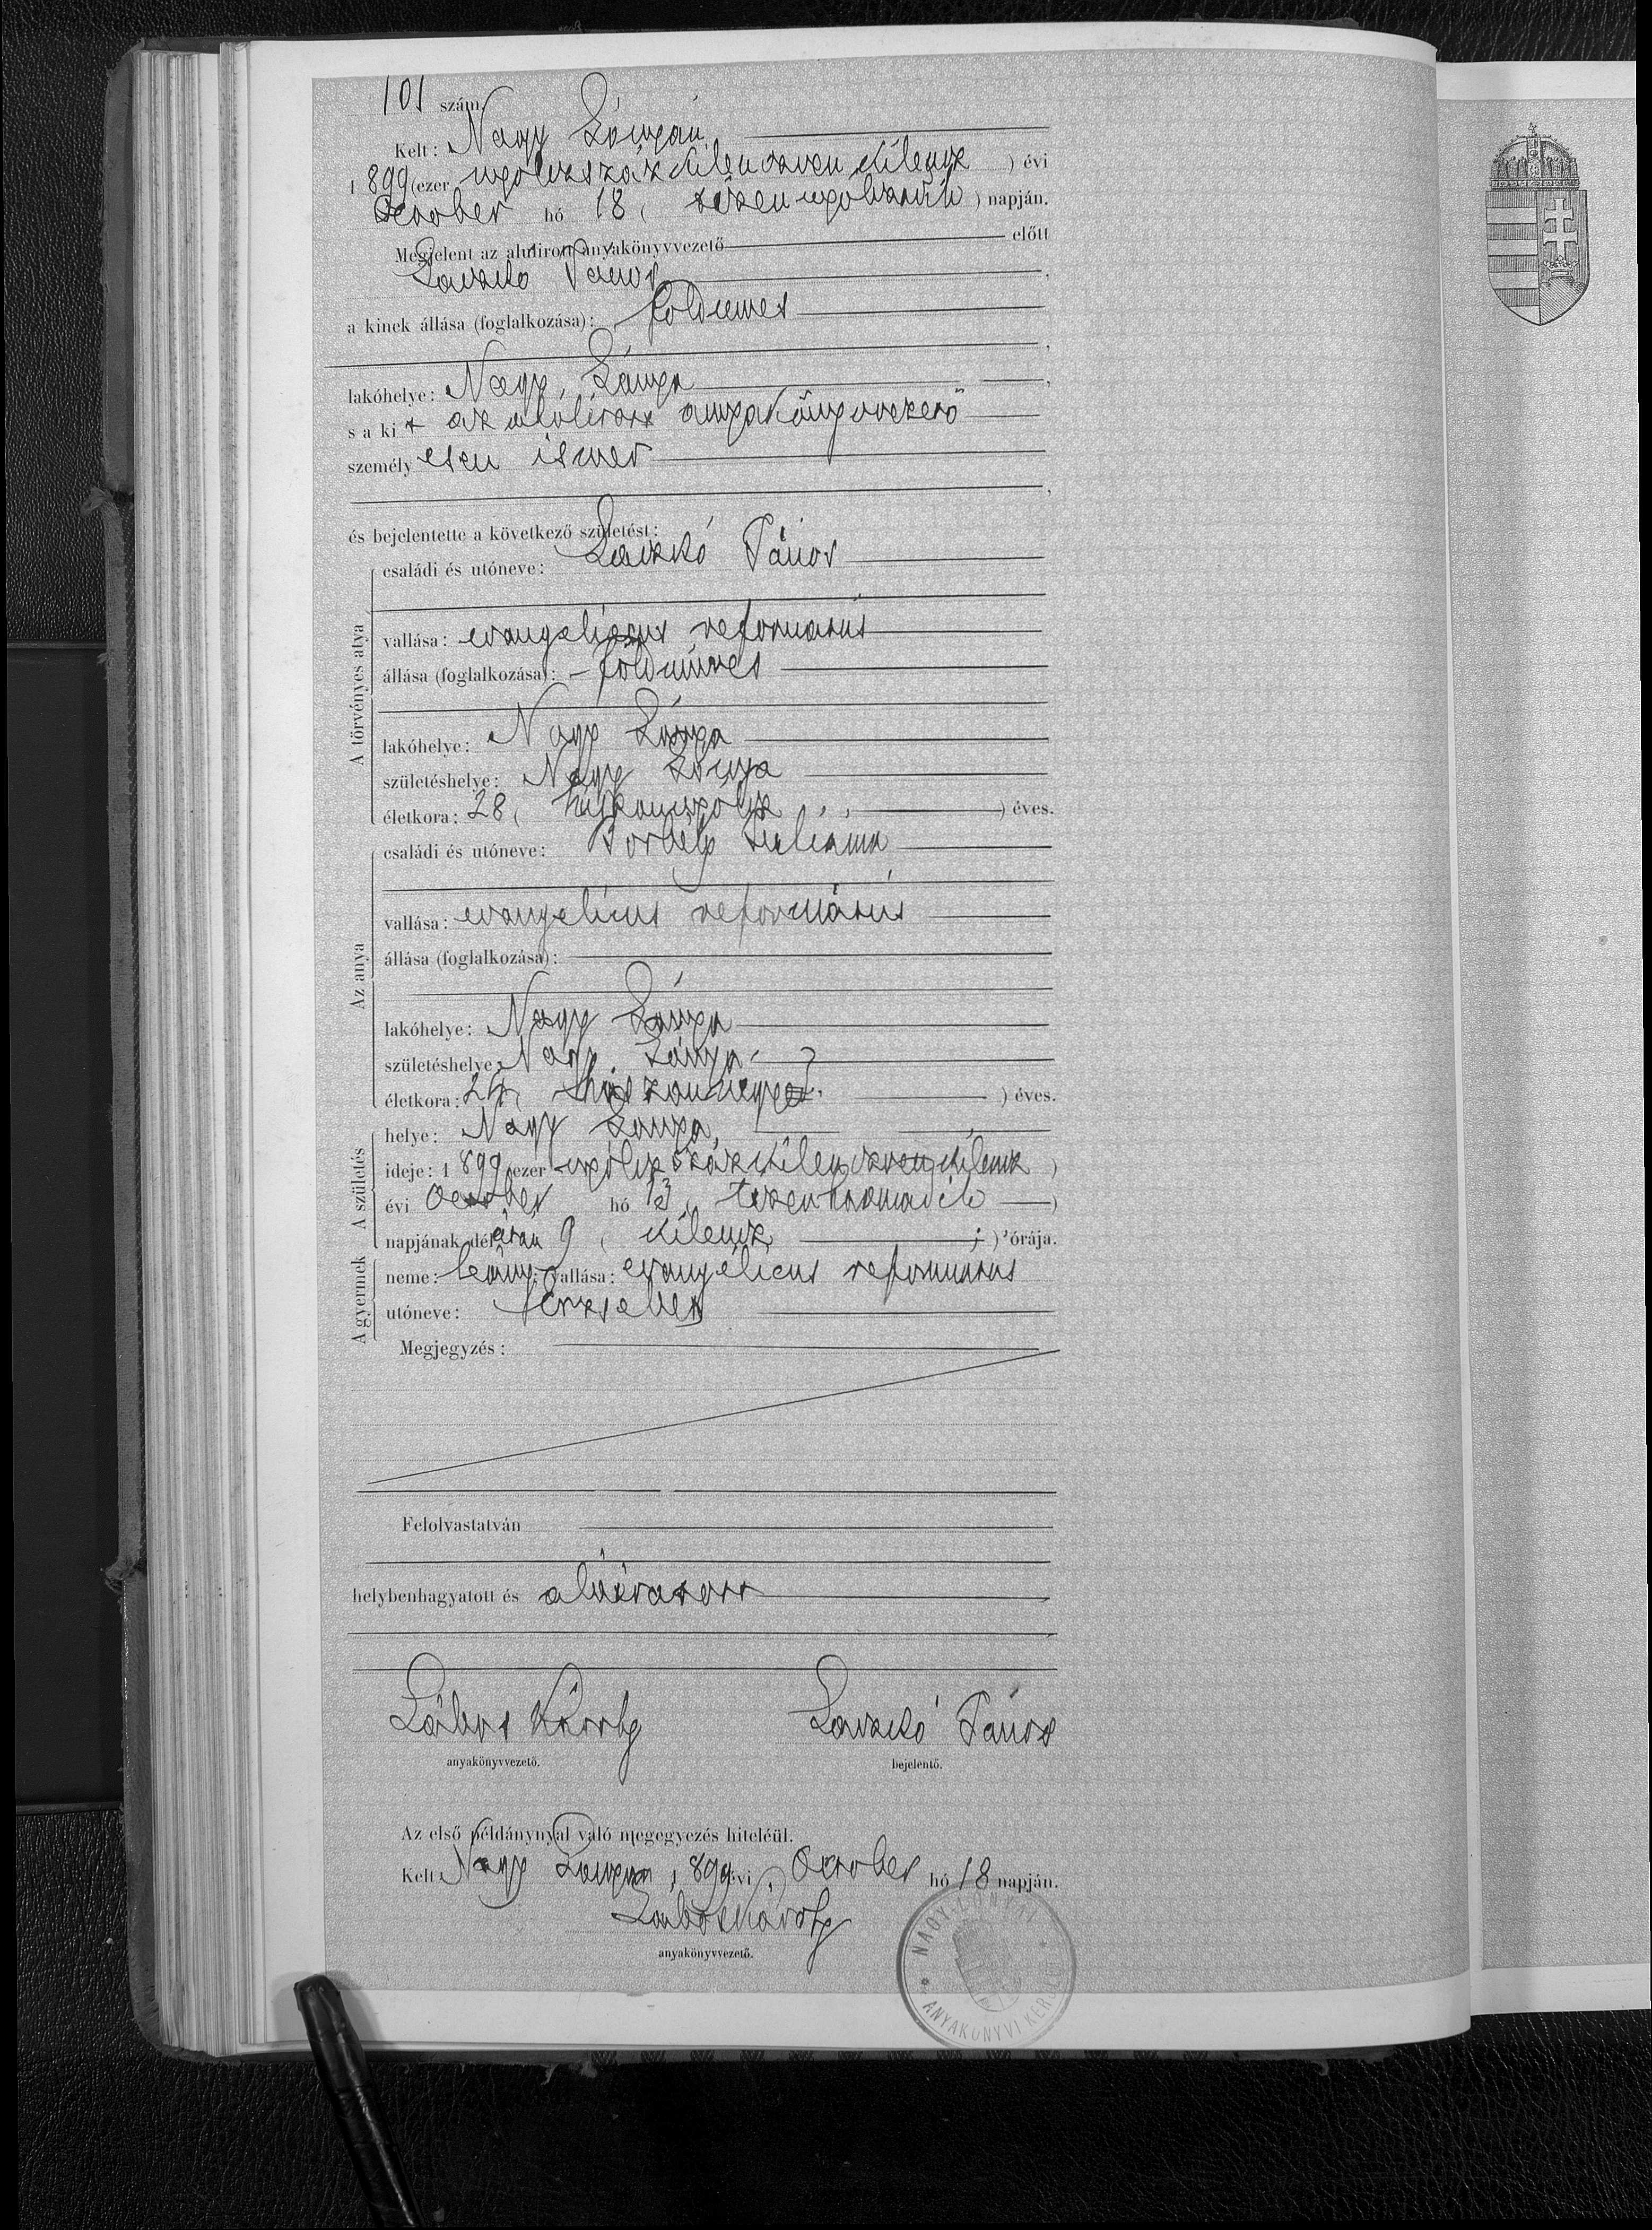 101 szám.
Kelt: Nagy Lónyán
1899 (ezer nyolczszázkilenczvenkilencz) évi
October hó 18 (tizennyolczadik) napján.
Megjelent az alulirott anyakönyvvezető előtt
Laczkó János,
a kinek állása (foglalkozása): földmives
lakóhelye: Nagy Lónya,
s a ki t az alolirott anyakönyvvezető
személyesen ismer
és bejelentette a következő születést:
A törvényes atya
családi és utóneve: Laczkó János
vallása: evangelicus reformatus
állása (foglalkozása): földmives
lakóhelye: Nagy Lónya
születéshelye: Nagy Lónya
életkora: 28 (huszonnyolcz) éves.
Az anya
családi és utóneve: Borbély Juliánna
vallása: evangelicus református
állása (foglalkozása):
lakóhelye: Nagy Lónya
születéshelye: Nagy Lónya
életkora: 24 (huszonnégy) éves.
A születés
helye: Nagy Lónya,
ideje: 1899 (ezer nyolczszázkilenczvenkilencz)
évi October hó 13 (tizenharmadik)
napjának délután 9 (kilencz) órája.
A gyermek
neme: leány; vallása: evangélicus reformatus
utóneve: Erzsébet
Megjegyzés:
Felolvastatván
helybenhagyatott és aláiratott
Lábos Károly
anyakönyvvezető.
Laczkó János
bejelentő.
Az első példánynyal való megegyezés hiteléül.
Kelt Nagy Lónyán, 1899 évi October hó 18 napján.
Lábos Károly
anyakönyvvezető.
NAGY-LÓNYAI
ANYAKÖNYVI KERÜLET